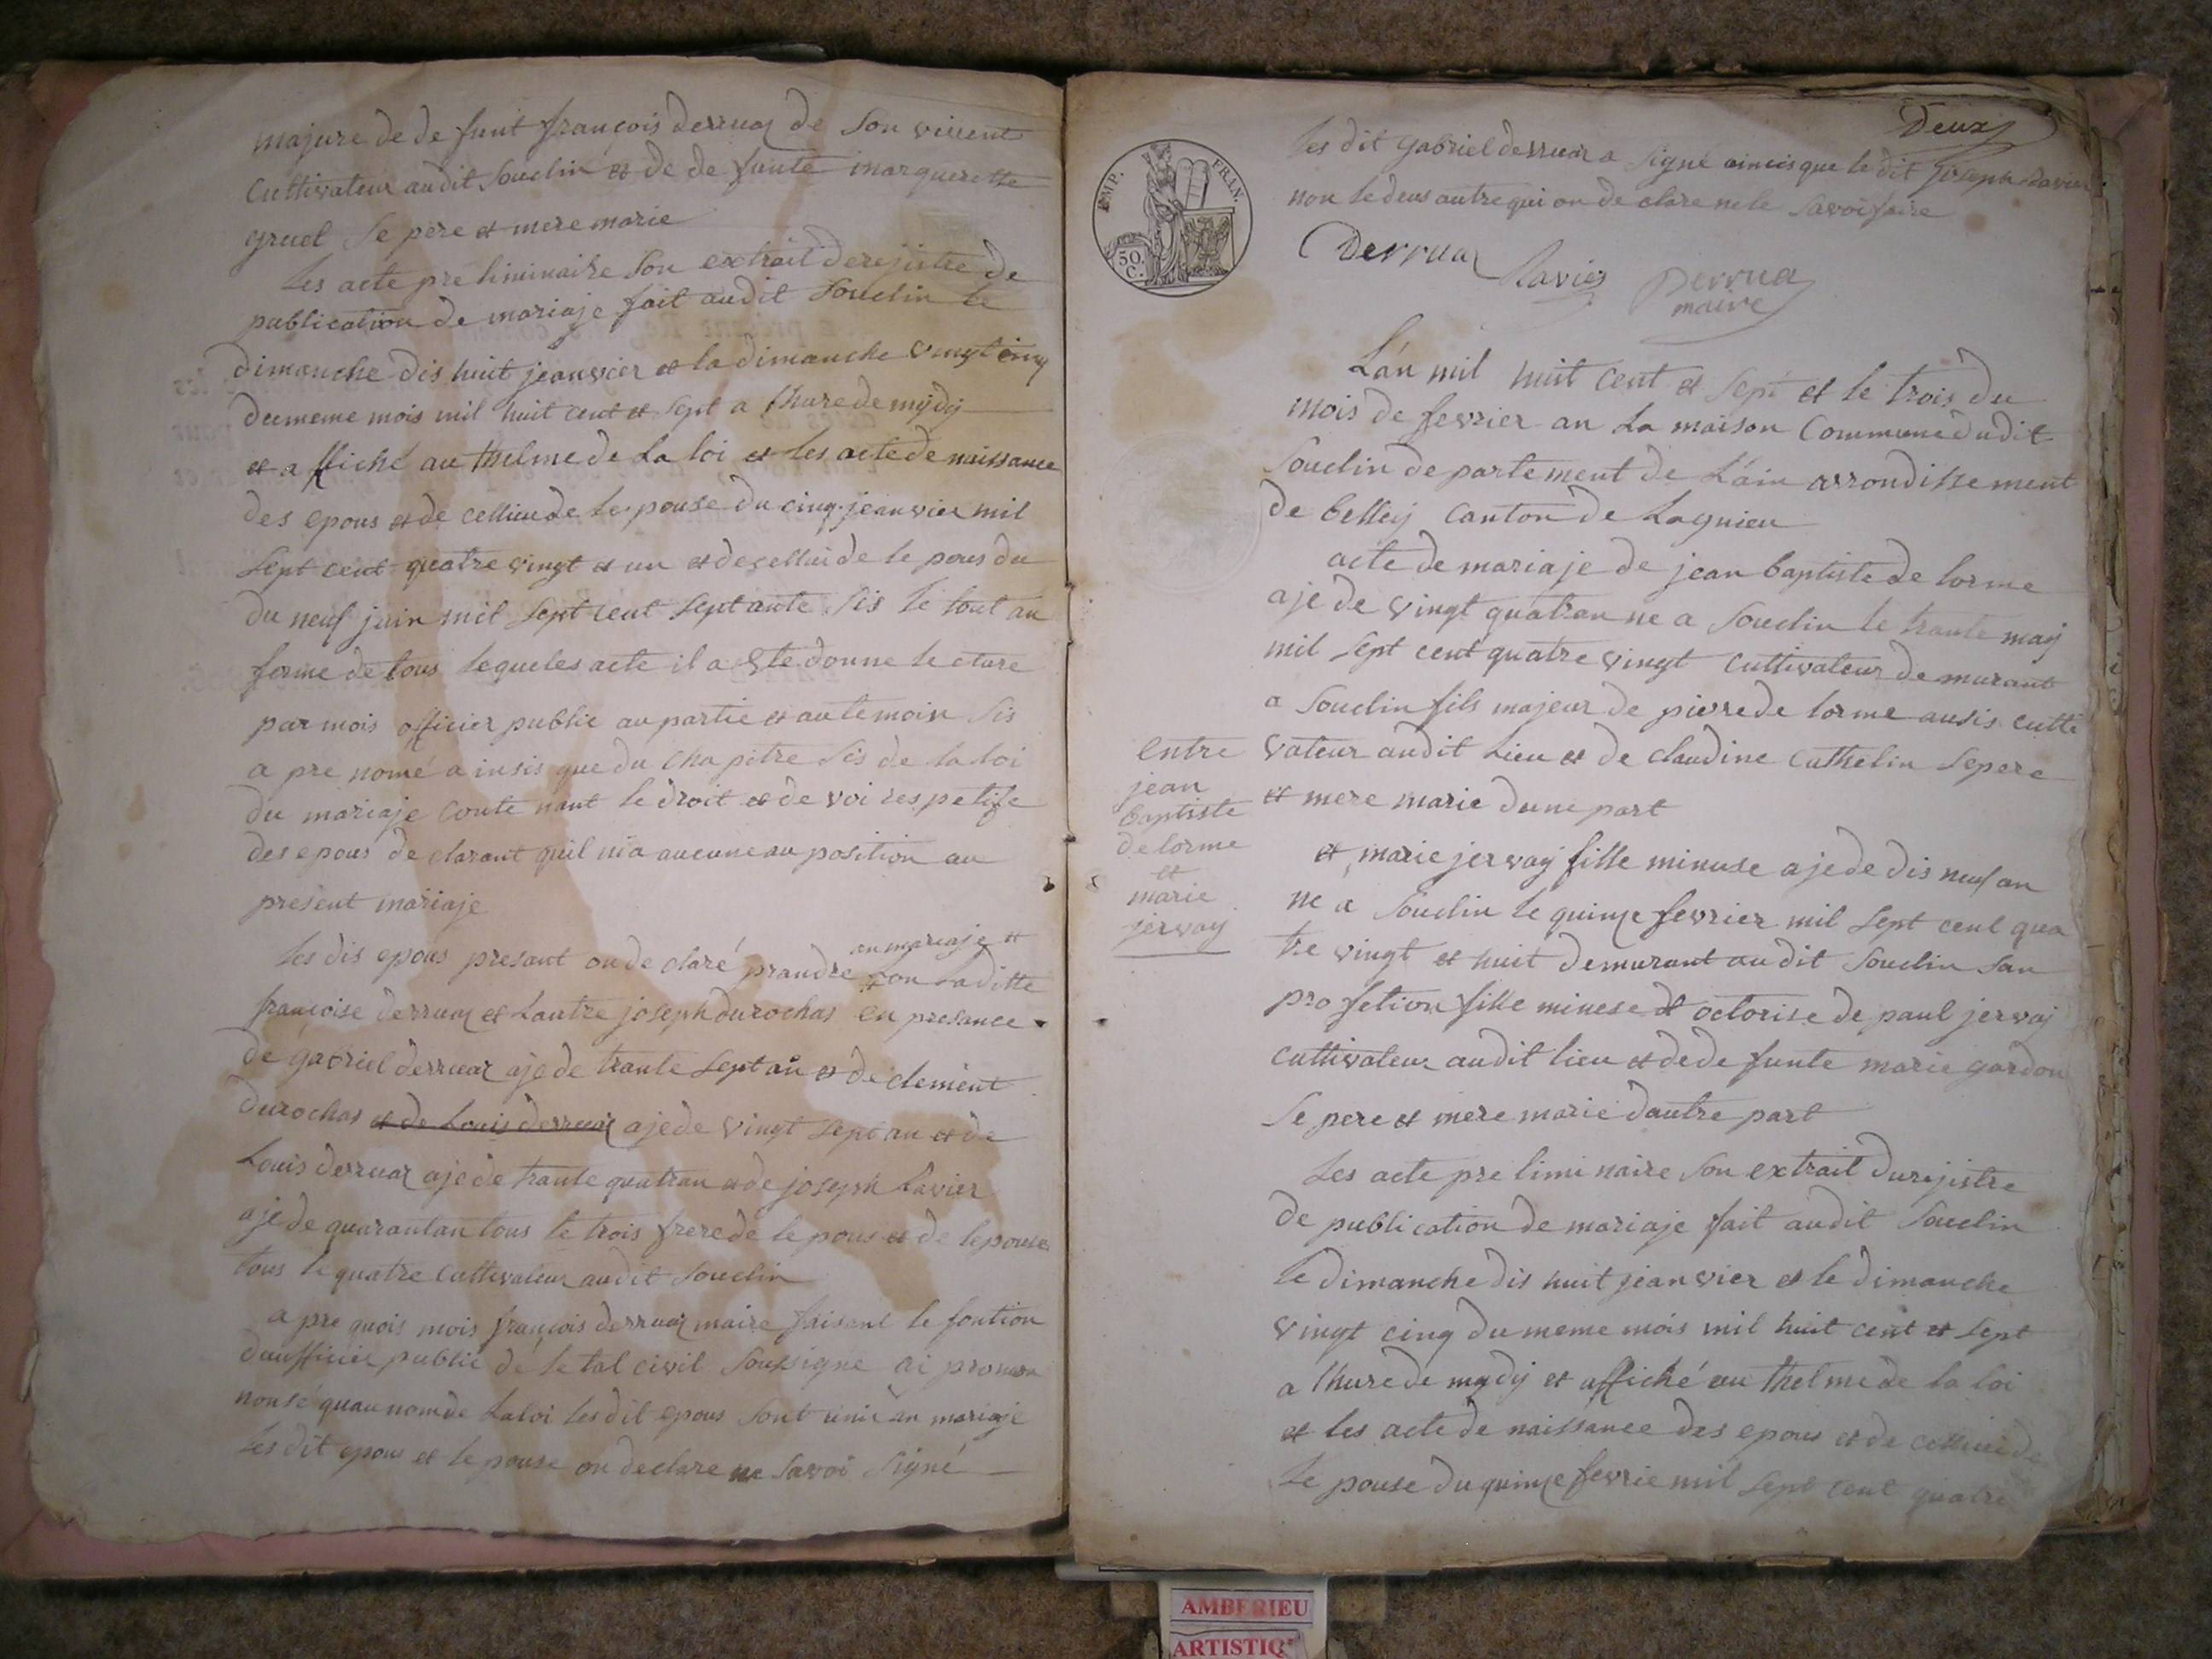 majure de de funt françois derruaz de son vivent
Cultivateur audit Souclin et de de funte marguerette
gruel se pere et mere marie
Les acte pre liminaire son extrait de rejistre de
publication de mariaje fait audit Souclin le
dimanche dis huit jeanvier et la dimanche vingt cinq
du meme mois mil huit cent et sept a lhure de mydy
et a ffiché au thelme de La loi et les acte de naissance
des epous et de celluide le pouse du cinq jeanvier mil
Sept cent quatre vingt et un et de celluide le pous du
du neuf juin mil Sept cent Septante sis le tout an
forme de tous lequeles acte il a Ete donne lecture
par mois officier public au partie et au temoin sis
a pre nomé a insis que du Chapitre Sis de la loi
du mariaje conte nant le droit et de voi respetife
des epous de clarant quil nia aucune au position au
present mariaje
Les dis epous presant on de claré prandre an mariaje et
lon laditte
françoise derruaz et Lautre joseph durochas en presance
de gabriel derruaz aje de trante sept an et de clement
durochas et de Louis derruaz aje de vingt sept an et de
Louis derruaz aje de trante quatran et de joseph Ravier
aje de quarantan tous le trois frere de le pous et de lepouse
tous le quatre Cultivateur audit Souclin
a pre quois mois françois derruaz maire faisant le fontion
daufficier public de le tat civil Soussigne ai pronon
nonsé quau nom de La loi lesdit epous Sont unis an mariaje
les dit epous et le pouse on declare ne Savoi Signé
Deux
les dit gabriel derruaz a Signé aincis que le dit Joseph Ravier
non le deus autre qui on de clare ne le Savoi faire
EMP. FRAN.
50 C.
Derruaz
Ravier
Derrua
maire
L'án mil huit cent et Sept et le trois du
mois de fevrier an La maison Commune du dit
Souclin departement de L'áin arrondissement
de belley Canton de Lagnieu
acte de mariaje de jean baptiste de lorme
aje de vingt quatran ne a Souclin le trante may
mil Sept cent quatre vingt Cultivateur demurant
a Souclin fils majeur de pierre de lorme ausis culti
vateur audit Lieu et de claudine Cathelin sepere
et mere marie dune part
Entre
jean
baptiste
delorme
et
marie
jervay
et marie jervay fille minuse aje de dis neuf an
ne a Souclin le quinze fevrier mil Sept cent qua
tre vingt et huit demurant au dit Souclin San
profetion fille minese et octorise de paul jervay
Cultivateur audit lieu et de de funte marie gardon
Se pere et mere marie dautre part
Les acte pre liminaire son extrait du rejistre
de publication de mariaje fait audit Souclin
le dimanche dis huit jeanvier et le dimanche
vingt cinq du meme mois mil huit cent et Sept
a lhure de mydy et affiché au thelme de la loi
et les acte de naissance des epous et de celluide
le pouse du quinze fevrie mil Sept cent quatre
AMBERIEU
ARTISTIQ